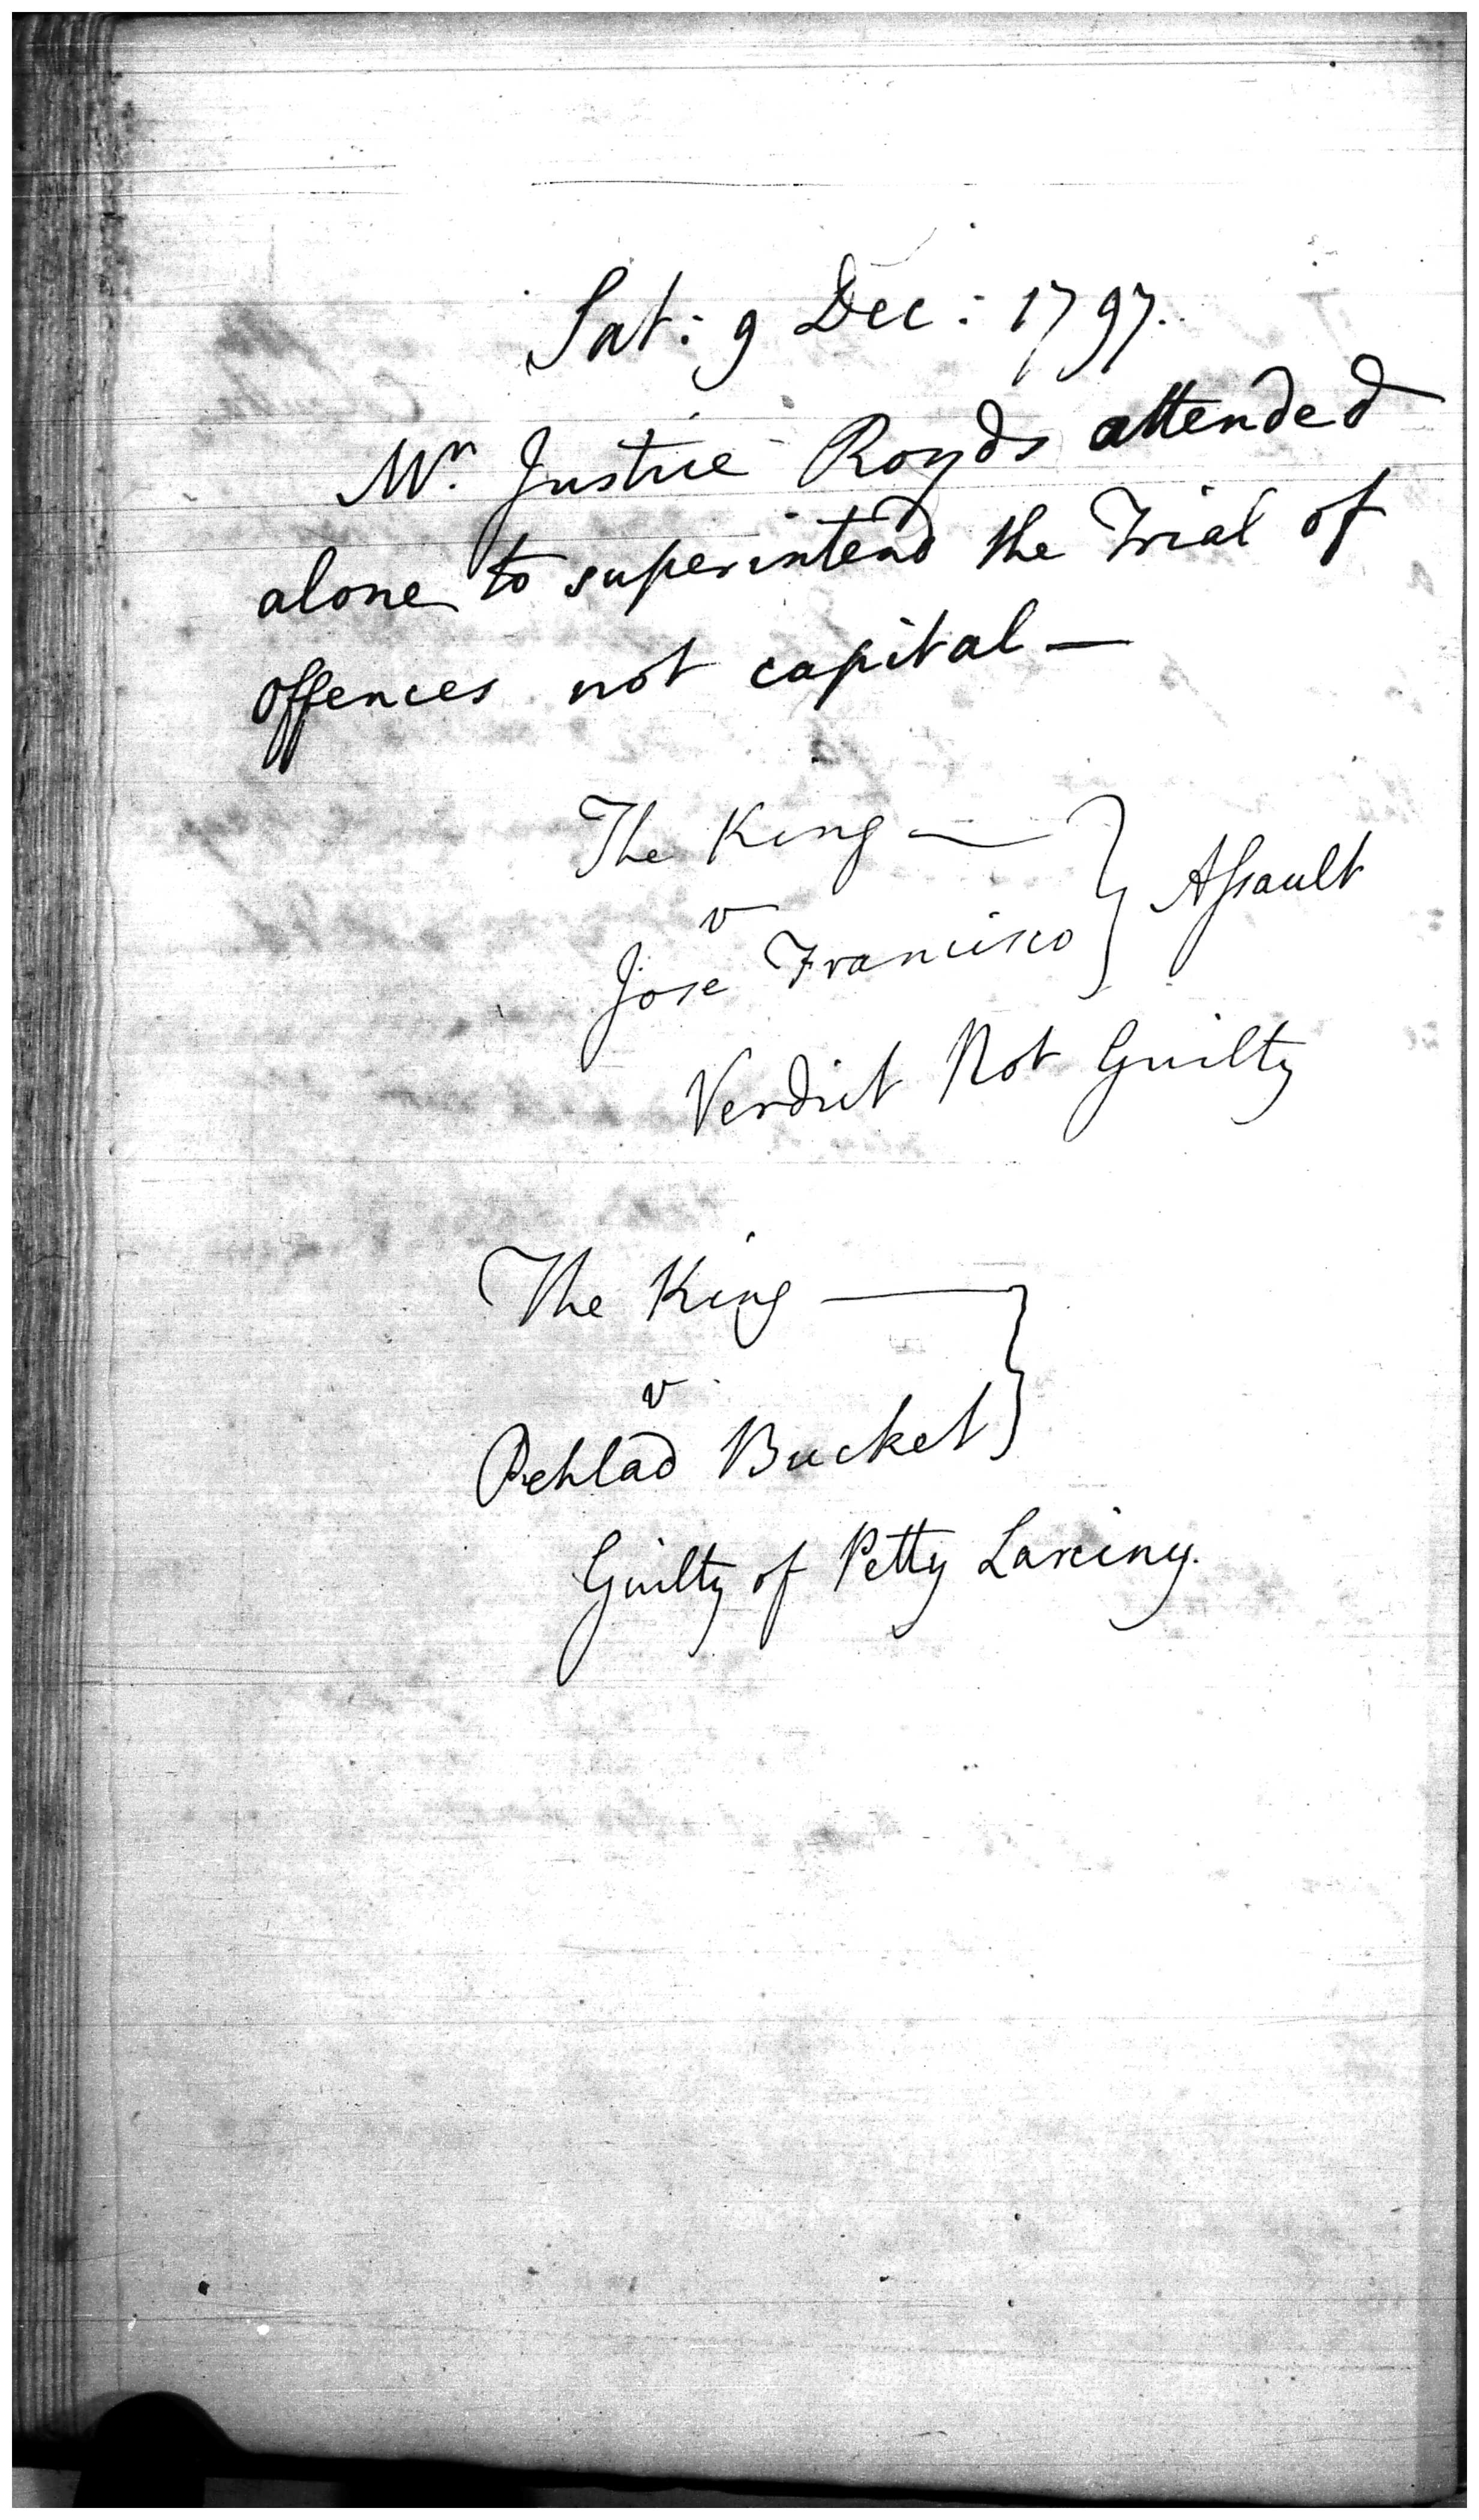 Sat: 9 Dec: 1797.
Mr. Justice Royds attended
alone to superintend the Trial of
offences not capital —
The King —
v
Jose Francisco } Assault
Verdict Not Guilty
The King —
v
Pehlad Bucket }
Guilty of Petty Larciny.